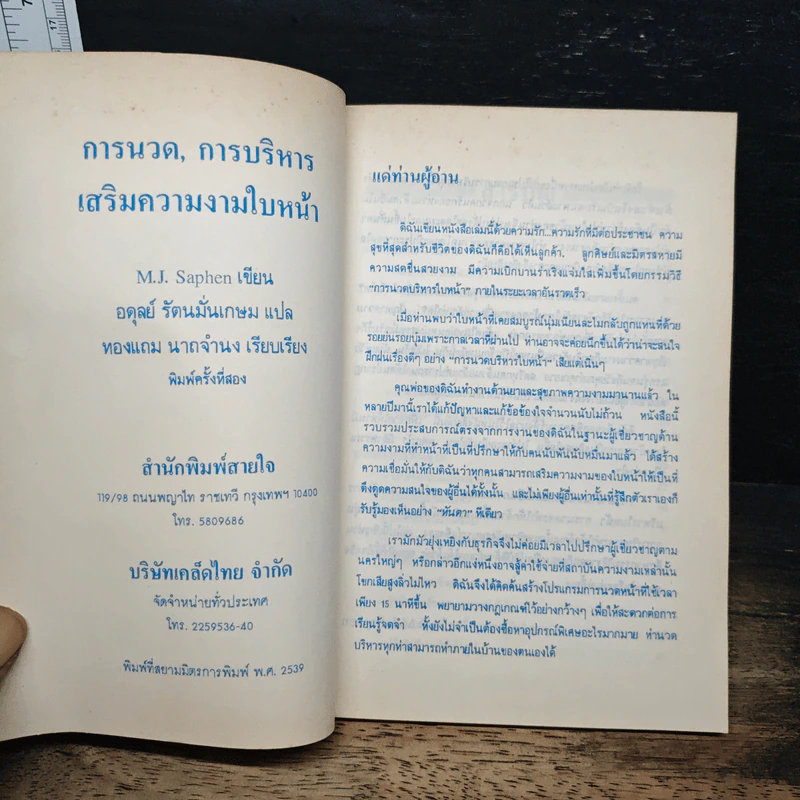 7
17
การนวด, การบริหาร
เสริมความงามใบหน้า
M.J. Saphen เขียน
อดุลย์ รัตนมั่นเกษม แปล
ทองแถม นาถจำนง เรียบเรียง
พิมพ์ครั้งที่สอง
สำนักพิมพ์สายใจ
119/98 ถนนพญาไท ราชเทวี กรุงเทพฯ 10400
โทร. 5809686
บริษัทเคล็ดไทย จำกัด
จัดจำหน่ายทั่วประเทศ
โทร. 2259536-40
พิมพ์ที่สยามมิตรการพิมพ์ พ.ศ. 2539
แด่ท่านผู้อ่าน
ดิฉันเขียนหนังสือเล่มนี้ด้วยความรัก..ความรักที่มีต่อประชาชน ความ
สุขที่สุดสำหรับชีวิตของดิฉันก็คือได้เห็นลูกค้า, ลูกศิษย์และมิตรสหายมี
ความสดชื่นสวยงาม มีความเบิกบานร่าเริงแจ่มใสเพิ่มขึ้นโดยกรรมวิธี
“การนวดบริหารใบหน้า” ภายในระยะเวลาอันรวดเร็ว
เมื่อท่านพบว่าใบหน้าที่เคยสมบูรณ์นุ่มเนียนละไมกลับถูกแทนที่ด้วย
รอยย่นรอยบุ๋มเพราะกาลเวลาที่ผ่านไป ท่านอาจจะค่อยนึกขึ้นได้ว่าน่าจะสนใจ
ฝึกฝนเรื่องดีๆ อย่าง “การนวดบริหารใบหน้า” เสียแต่เนิ่นๆ
คุณพ่อของดิฉันทำงานด้านยาและสุขภาพความงามมานานแล้ว ใน
หลายปีมานี้เราได้แก้ปัญหาและแก้ข้อข้องใจจำนวนนับไม่ถ้วน หนังสือนี้
รวบรวมประสบการณ์ตรงจากการงานของดิฉันในฐานะผู้เชี่ยวชาญด้าน
ความงามที่ทำหน้าที่เป็นที่ปรึกษาให้กับคนนับพันนับหมื่นมาแล้ว ได้สร้าง
ความเชื่อมั่นให้กับดิฉันว่าทุกคนสามารถเสริมความงามของใบหน้าให้เป็นที่
ดึงดูดความสนใจของผู้อื่นได้ทั้งนั้น และไม่เพียงผู้อื่นเท่านั้นที่รู้สึกตัวเราเองก็
รับรู้มองเห็นอย่าง “ทันตา” ทีเดียว
เรามักมัวยุ่งเหยิงกับธุรกิจจึงไม่ค่อยมีเวลาไปปรึกษาผู้เชี่ยวชาญตาม
นครใหญ่ๆ หรือกล่าวอีกแง่หนึ่งอาจสู้ค่าใช้จ่ายที่สถาบันความงามเหล่านั้น
โขกเสียสูงลิ่วไม่ไหว ดิฉันจึงได้คิดค้นสร้างโปรแกรมการนวดหน้าที่ใช้เวลา
เพียง 15 นาทีขึ้น พยายามวางกฎเกณฑ์ไว้อย่างกว้างๆ เพื่อให้สะดวกต่อการ
เรียนรู้จดจำ ทั้งยังไม่จำเป็นต้องซื้อหาอุปกรณ์พิเศษอะไรมากมาย ท่านวด
บริหารทุกท่าสามารถทำภายในบ้านของตนเองได้